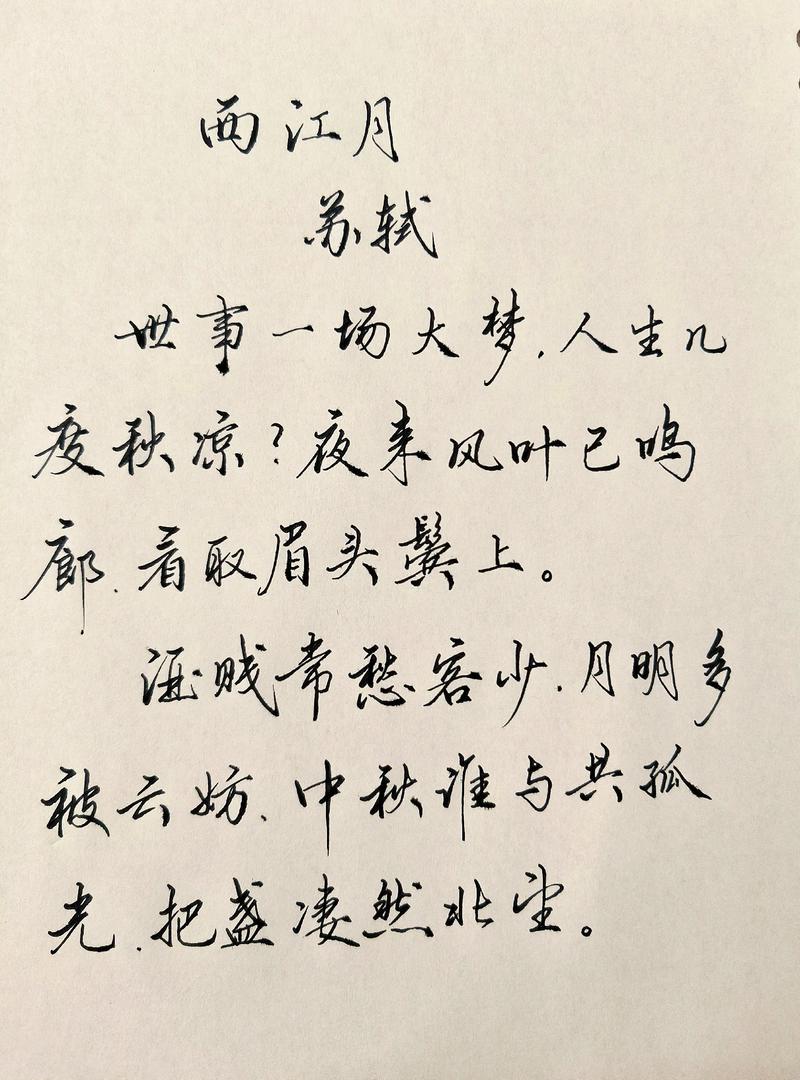 西江月
苏轼
世事一场大梦,人生几
度秋凉?夜来风叶已鸣
廊,看取眉头鬓上。
酒贱常愁客少,月明多
被云妨,中秋谁与共孤
光,把盏凄然北望。